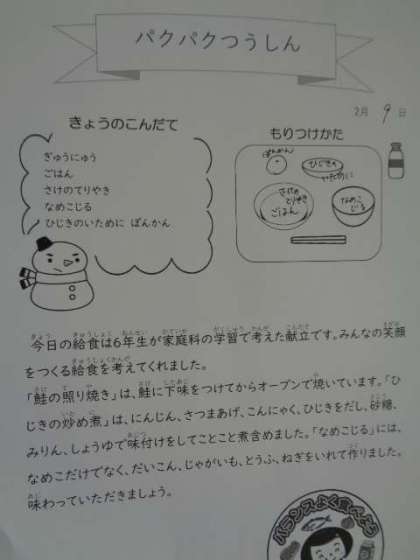 パクパクつうしん
2月 9 日
きょうのこんだて
ぎゅうにゅう
ごはん
さけのてりやき
なめこじる
ひじきのいために ぽんかん
もりつけかた
ぽんかん
ひじきの
いために
さけの
てりやき
ごはん
なめこ
じる
今日の給食は6年生が家庭科の学習で考えた献立です。みんなの笑顔
をつくる給食を考えてくれました。
「鮭の照り焼き」は、鮭に下味をつけてからオーブンで焼いています。「ひ
じきの炒め煮」は、にんじん、さつまあげ、こんにゃく、ひじきをだし、砂糖、
みりん、しょうゆで味付けをしてことこと煮含めました。「なめこじる」には、
なめこだけでなく、だいこん、じゃがいも、とうふ、ねぎをいれて作りました。
味わっていただきましょう。
バランスよく食べよう